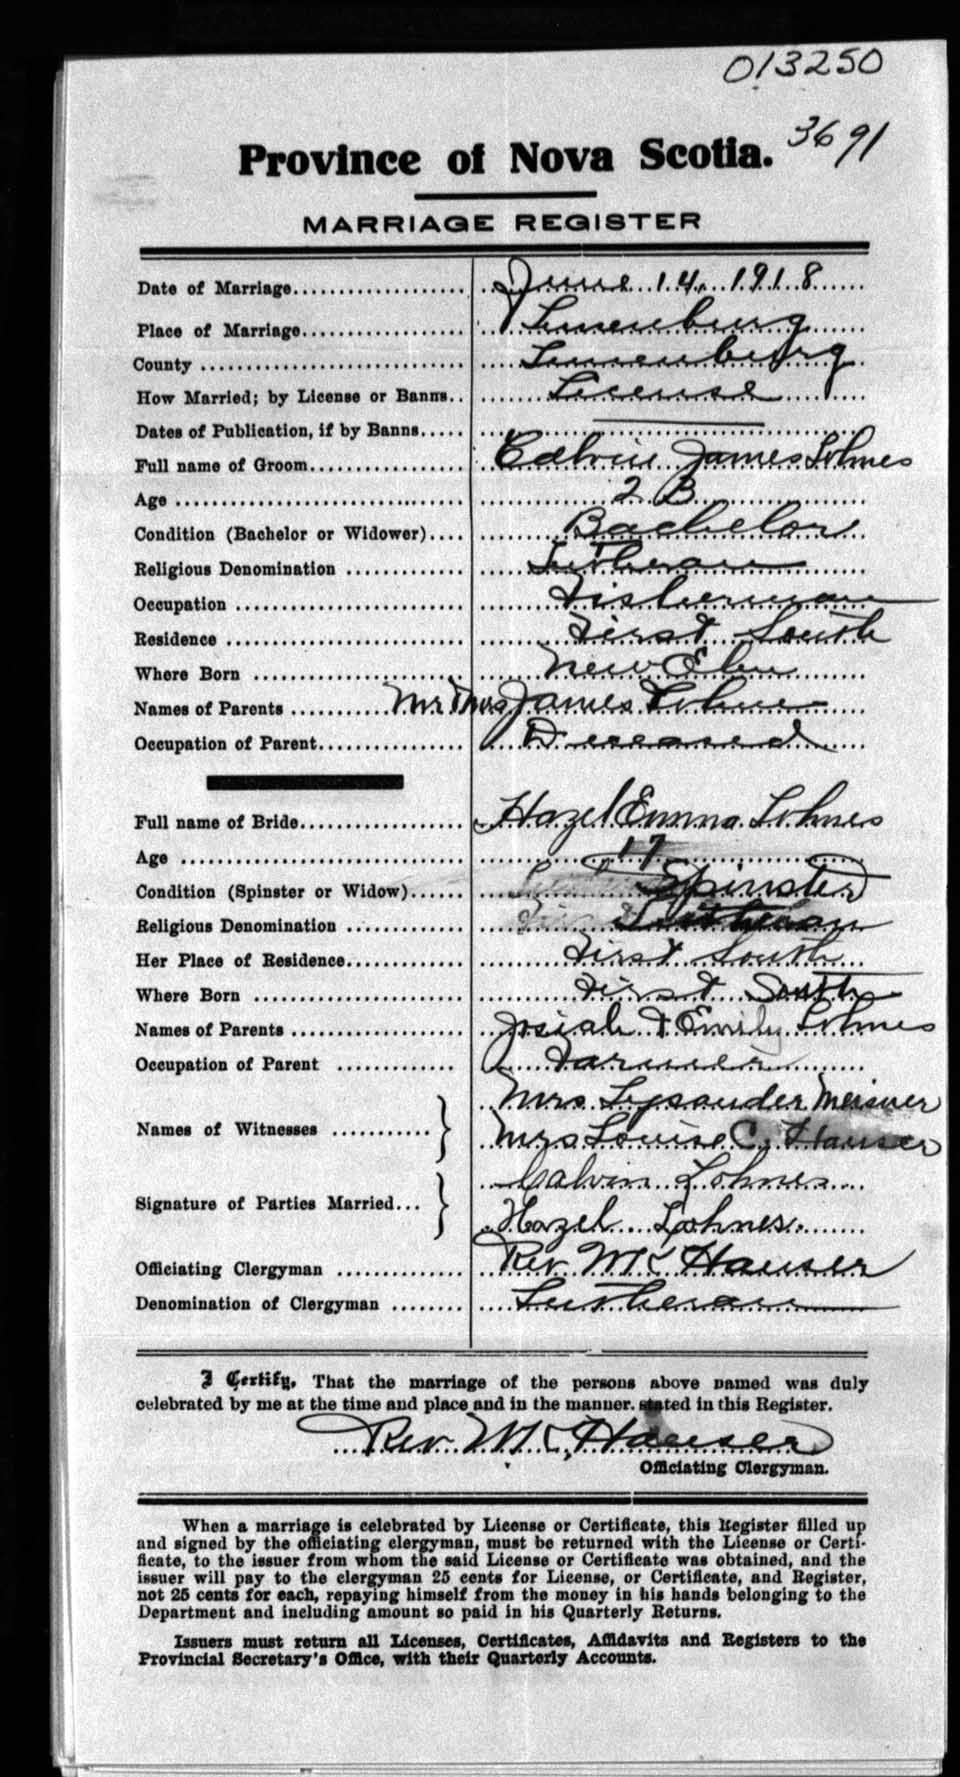 013250
3691
Province of Nova Scotia.
MARRIAGE REGISTER
Date of Marriage.................... June 14, 1918
Place of Marriage................... Lunenburg
County ............................. Lunenburg
How Married; by License or Banns.. License
Dates of Publication, if by Banns..... ———
Full name of Groom.................. Calvin James Lohnes
Age ................................ 23
Condition (Bachelor or Widower).... Bachelor
Religious Denomination ............. Lutheran
Occupation ......................... Fisherman
Residence .......................... First South
Where Born ......................... New Elm
Names of Parents ........... Mr Mrs James Lohnes
Occupation of Parent................ Deseased
Full name of Bride.................. Hazel Emma Lohnes
Age ................................ 17
Condition (Spinster or Widow)...... Spinster
Religious Denomination ............. Lutheran
Her Place of Residence.............. First South
Where Born ......................... First South
Names of Parents ................... Josiah & Emily Lohnes
Occupation of Parent ............. Farmer
Mrs Lysander Meisner
Names of Witnesses ...........} Mrs Louise C. Hauser
Calvin Lohnes
Signature of Parties Married...} Hazel Lohnes.
Officiating Clergyman .............. Rev. M K Hauser
Denomination of Clergyman ........ Lutheran
I Certify, That the marriage of the persons above named was duly
celebrated by me at the time and place and in the manner. stated in this Register.
Rev. M. K. Hauser
Officiating Clergyman.
When a marriage is celebrated by License or Certificate, this Register filled up
and signed by the officiating clergyman, must be returned with the License or Certi-
ficate, to the issuer from whom the said License or Certificate was obtained, and the
issuer will pay to the clergyman 25 cents for License, or Certificate, and Register,
not 25 cents for each, repaying himself from the money in his hands belonging to the
Department and including amount so paid in his Quarterly Returns.
Issuers must return all Licenses, Certificates, Affidavits and Registers to the
Provincial Secretary's Office, with their Quarterly Accounts.